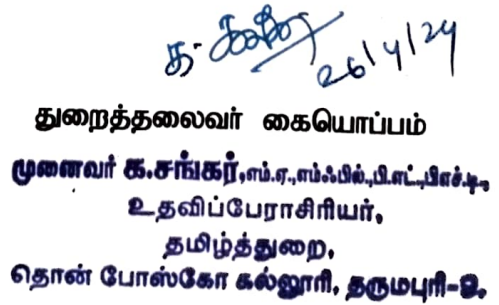 க. சங்கர் 26/4/24
துறைத்தலைவர் கையொப்பம்
முனைவர் க.சங்கர்,எம்.ஏ.,எம்ஃபில்.,பி.எட்.,பிஎச்.டி.,
உதவிப்பேராசிரியர்,
தமிழ்த்துறை,
தொன் போஸ்கோ கல்லூரி, தருமபுரி-9.